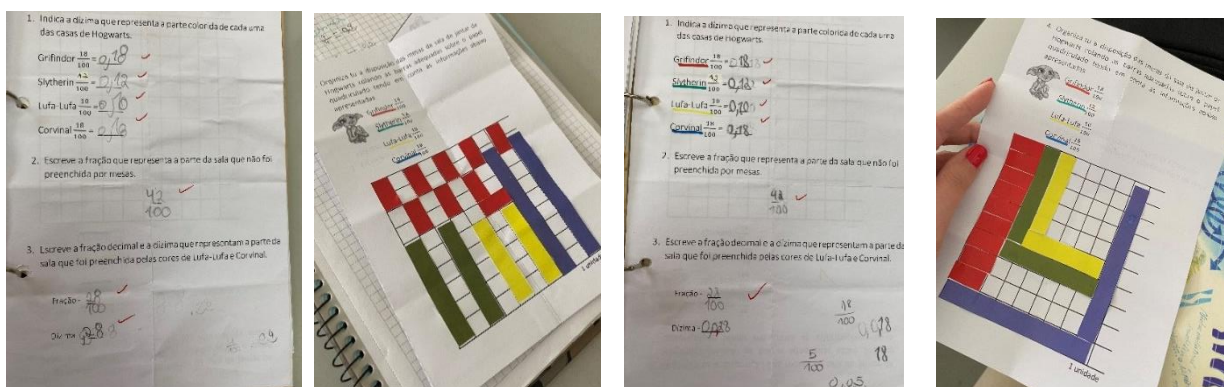 1. Indica a dízima que representa a parte colorida de cada uma
das casas de Hogwarts.
Grifindor 18/100 = 0,18
Slytherin 12/100 = 0,12
Lufa-Lufa 10/100 = 0,10
Corvinal 18/100 = 0,18
2. Escreve a fração que representa a parte da sala que não foi
preenchida por mesas.
42/100
3. Escreve a fração decimal e a dízima que representam a parte da
sala que foi preenchida pelas cores de Lufa-Lufa e Corvinal.
Fração - 28/100
Dízima
Organiza tu a disposição das mesas da sala de jantar de
Hogwarts colando as barras adequadas sobre o papel
quadriculado tendo em conta as informações abaixo
apresentadas
Grifindor 18/100
Slytherin
Lufa-Lufa 10/100
Corvinal 18/100
1 unidade
1. Indica a dízima que representa a parte colorida de cada uma
das casas de Hogwarts.
Grifindor 18/100 = 0,18
Slytherin 12/100 = 0,12
Lufa-Lufa 10/100 = 0,10
Corvinal 18/100 = 0,18
2. Escreve a fração que representa a parte da sala que não foi
preenchida por mesas.
42/100
3. Escreve a fração decimal e a dízima que representam a parte da
sala que foi preenchida pelas cores de Lufa-Lufa e Corvinal.
Fração - 28/100
Dízima -
18/100
18
5/100
0,05
4. Organiza tu a disposição das mesas da sala de jantar de
Hogwarts colando as barras adequadas sobre o papel
quadriculado tendo em conta as informações abaixo
apresentadas
Grifindor 18/100
Slytherin
Lufa-Lufa 10/100
Corvinal 18/100
1 unidade